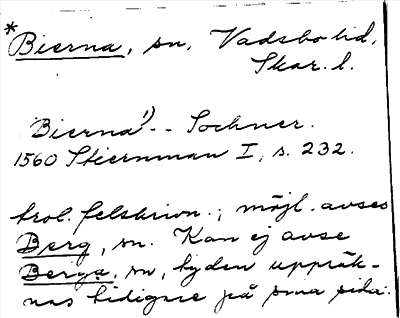 *Bierna, sn, Vadsbo hd,
Skar. l.
Bierna¹⁾ -- Sochner.
1560 Stiernman I, s. 232.
trol. felskrivn.; möjl. avses
Berg, sn. Kan ej avse
Berga, sn, ty den uppräk-
nas tidigare på sma sida.